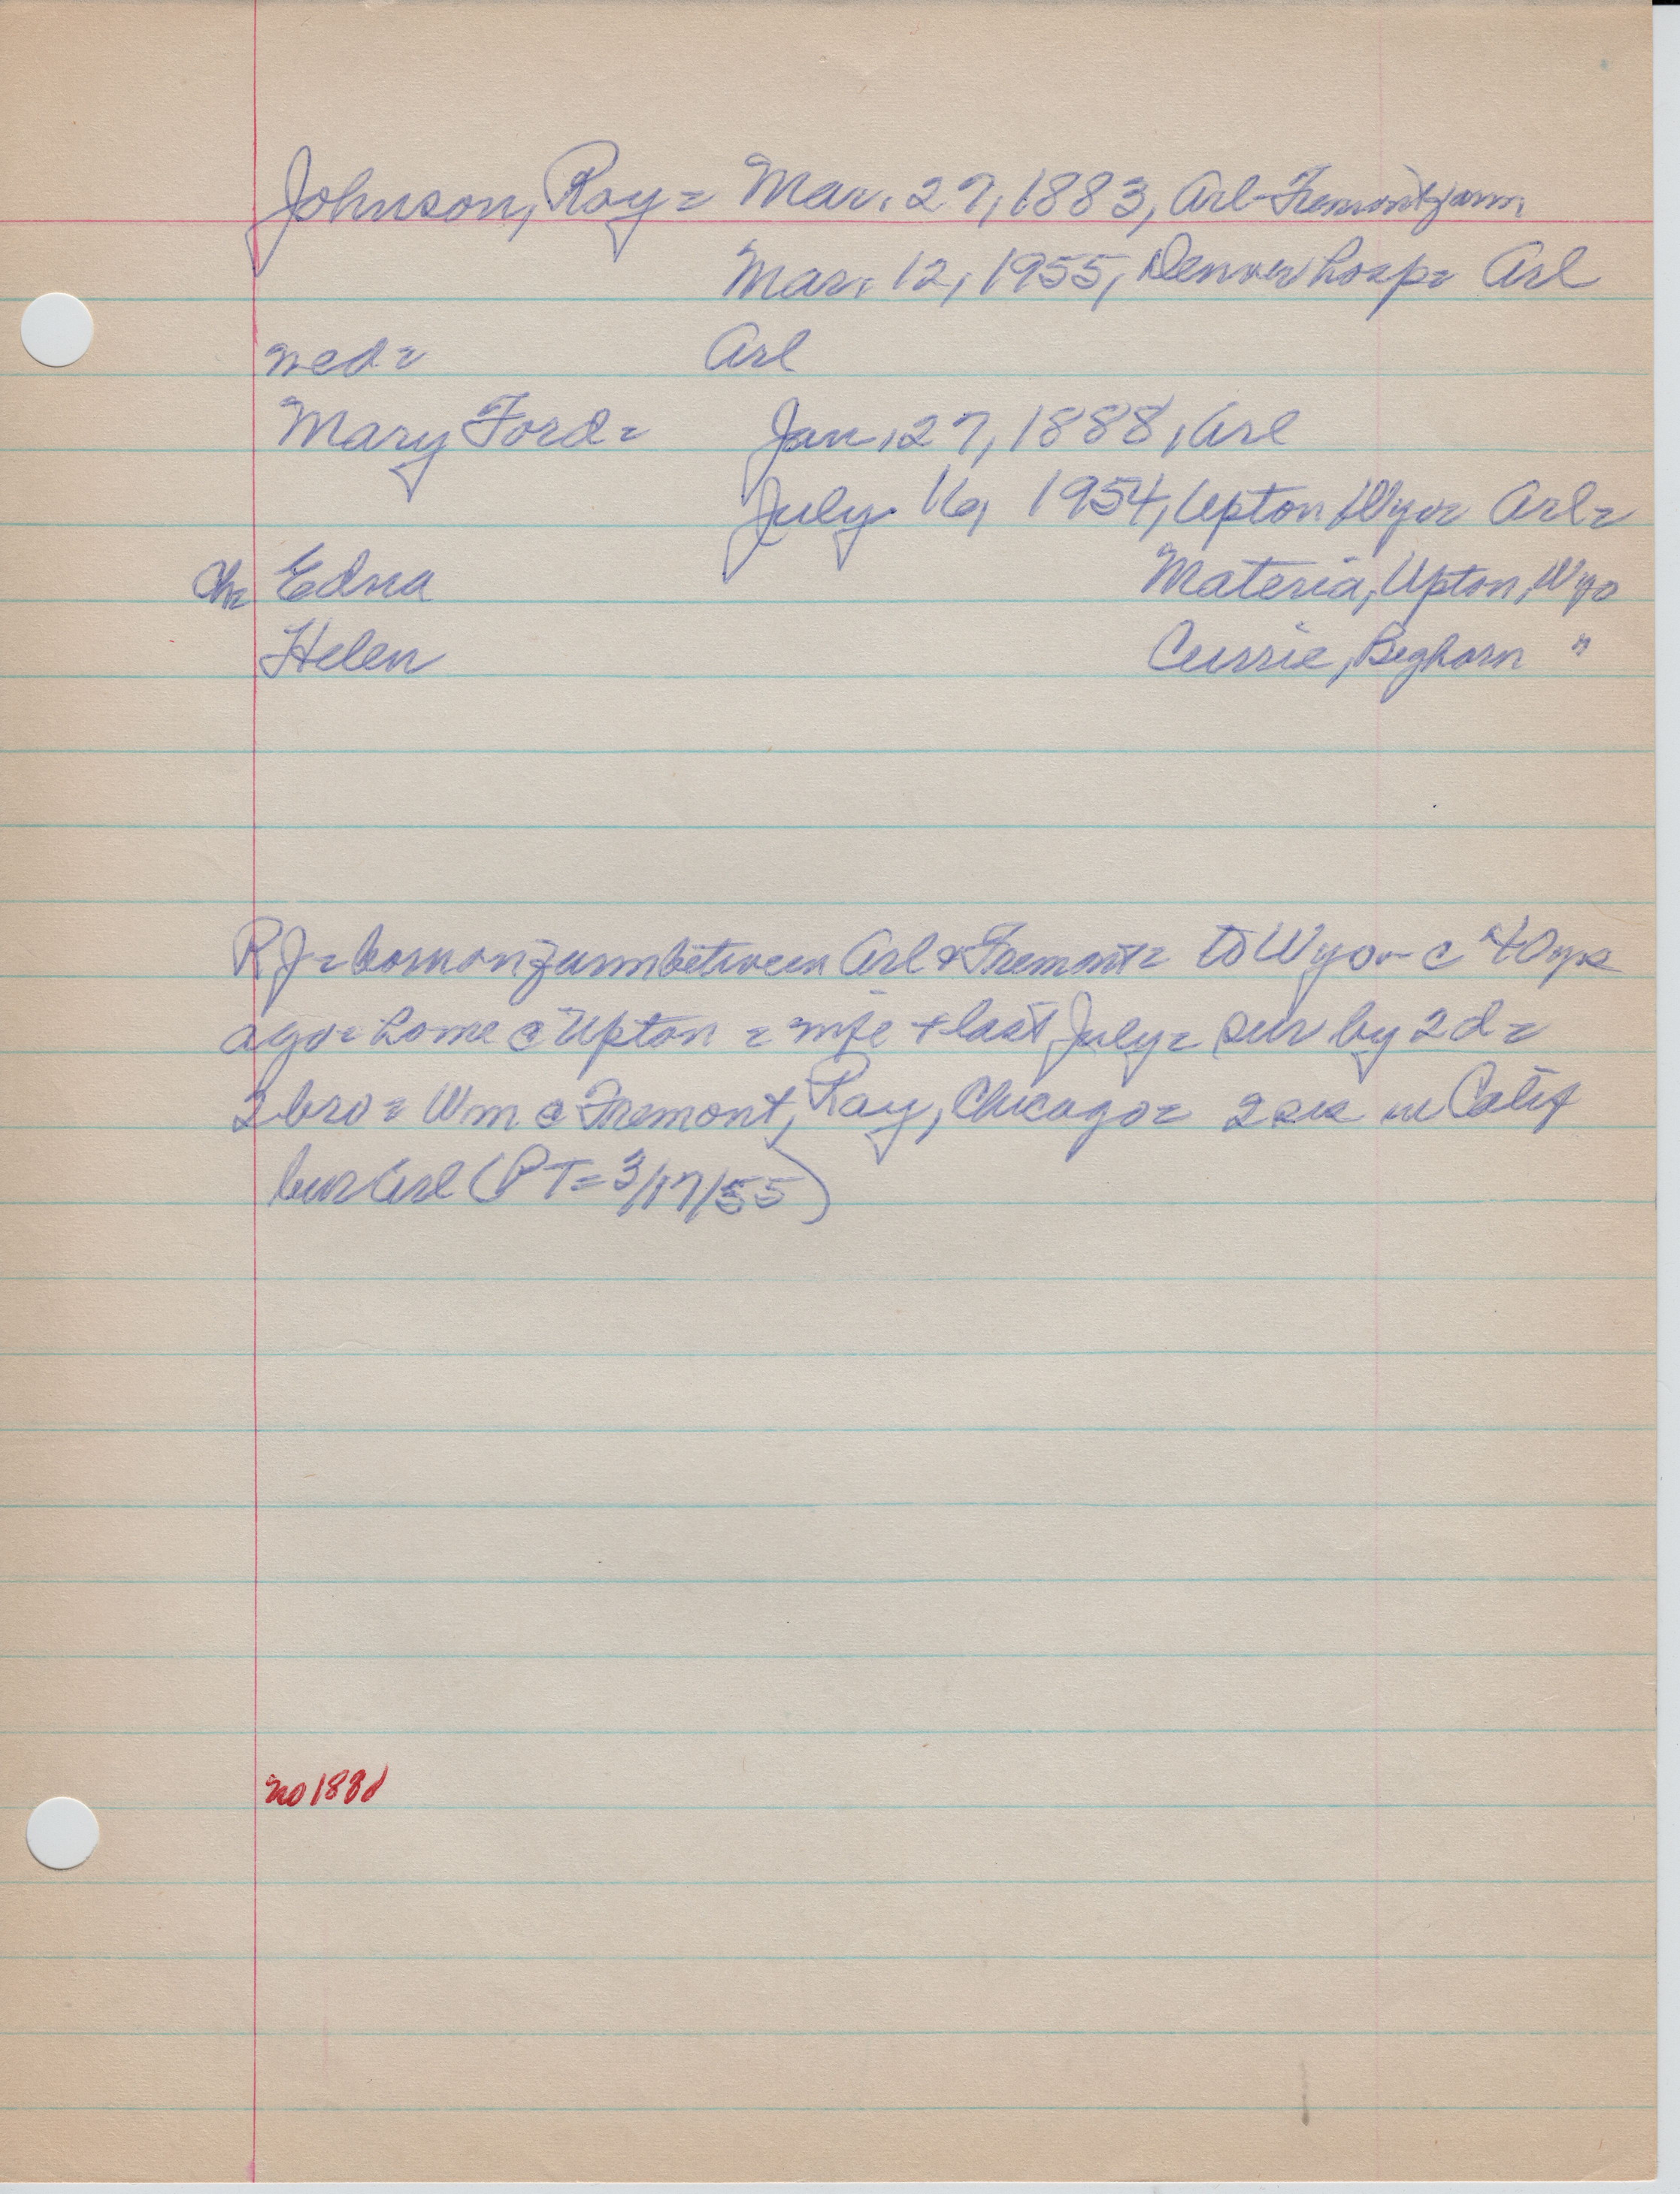 Johnson, Roy = Mar. 27, 1883, Arl-Fremont farm
Mar. 12, 1955, Denver hosp = Arl
wed = Arl
Mary Ford = Jan. 27, 1888, Arl
July 16, 1954, Upton Wyo = Arl =
Ch = Edna Materia, Upton, Wyo
Helen Currie, Beghorn "
RJ = born on farm between Arl & Fremont = to Wyo - c 40 yrs
ago = home c Upton = wife + last July = sur by 2 d =
bro = Wm c Fremont, Ray, Chicago = 2 sis in Calif
bur Arl (PT = 3/17/55)
no 1881